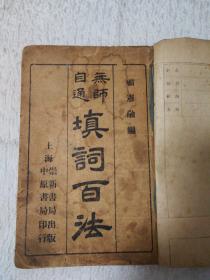 顧憲融編
無師
自通
填詞百法
上海
崇新書局出版
中原書局印行